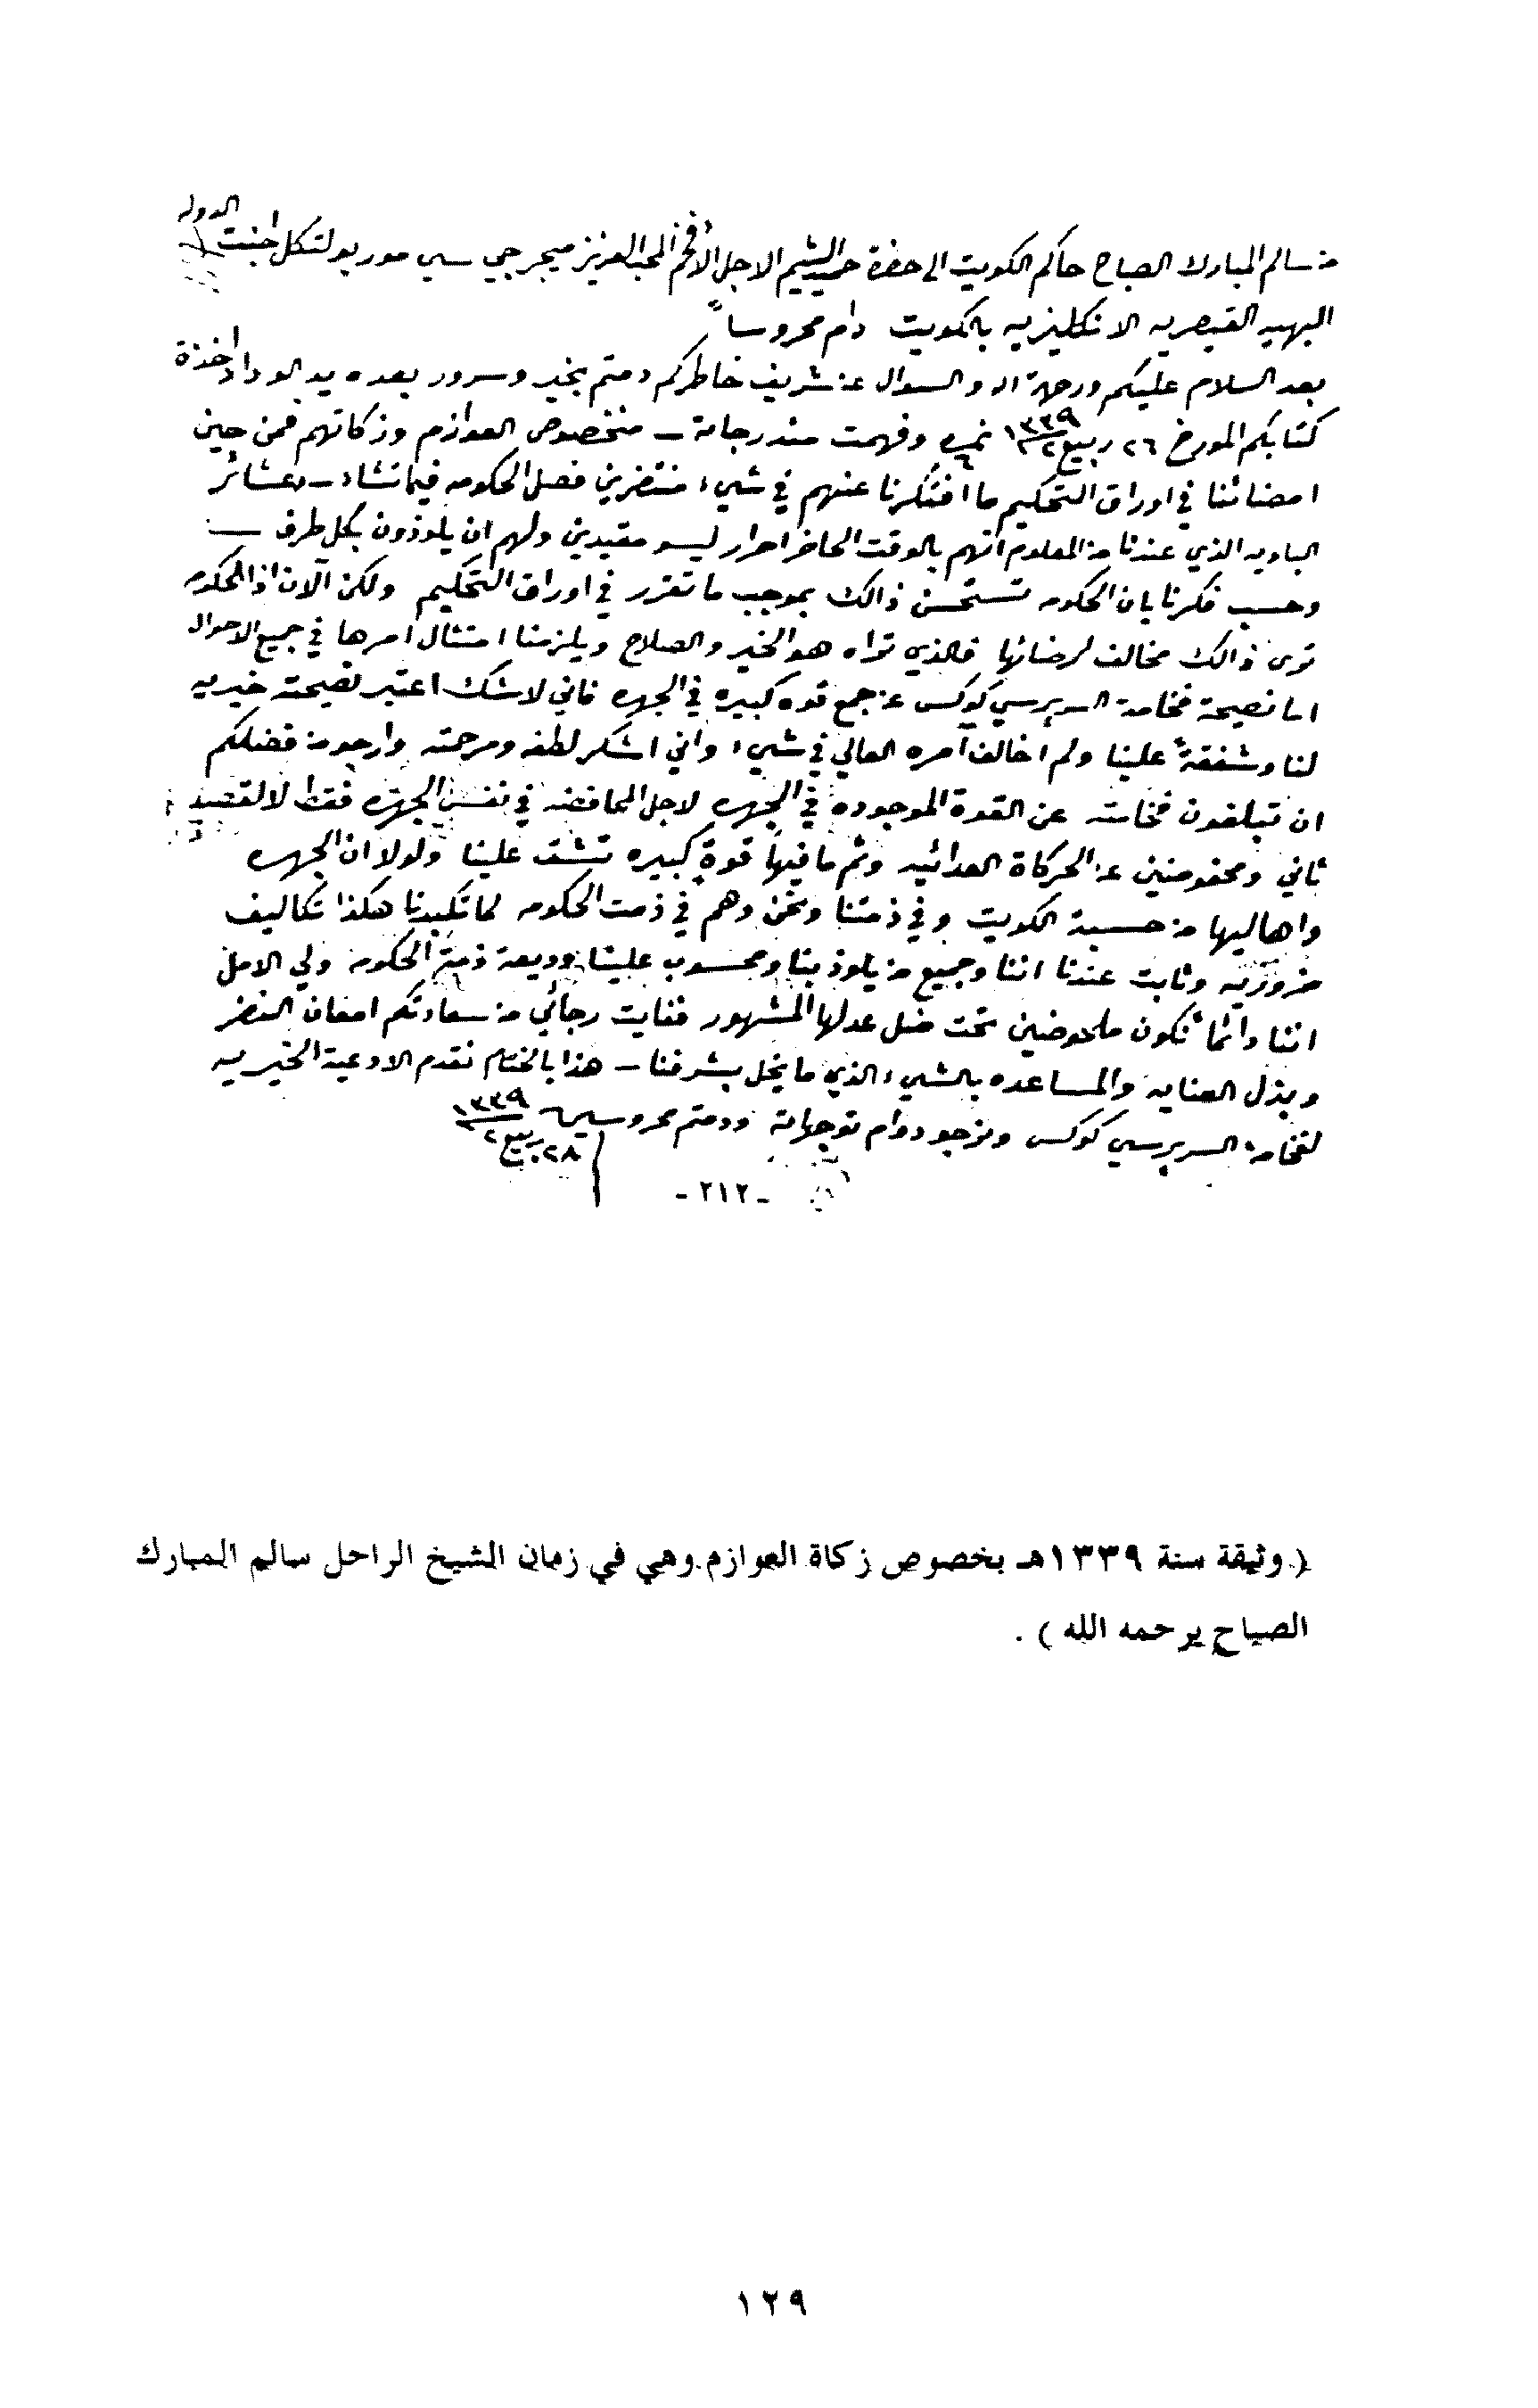 من سالم المبارك الصباح حاكم الكويت الى حضرة حميد الشيم الاجل الأفخم المحب العزيز ميجر جي سي مور بولتكل اجنت الدوله
البهيه القيصريه الانكليزيه بالكويت دام محروساً
بعد السلام عليكم ورحمة الله والسوال عن شريف خاطركم دمتم بخير وسرور بعده بيد الوداد اخذة
كتابكم المورخ ٢٦ ربيع٢ ١٣٣٩ نمره ٦ وفهمت مندرجاته – منخصوص العوازم وزكاتهم فمن حين
امضائنا في اوراق التحكيم ما افتكرنا عنهم في شيء منتضرين فصل الحكومه فيما تشاء – وعشائر
الباديه الذي عندنا من المعلوم انهم بالوقت الحاضر احرار ليسو مقيدين ولهم ان يلوذون بكل طرف –
وحسب فكرنا بان الحكومه تستحسن ذالك بموجب ما تقرر في اوراق التحكيم ولكن الآن اذا الحكومه
ترى ذالك مخالف لرضائها فالذي تراه هو الخير والصلاح ويلزمنا امتثال امرها في جميع الاحوال
اما نصيحة فخامة السر برسي كوكس عن جمع قوه كبيره في الجهره فاني لاشك اعتبر نصيحته خيريه
لنا وشفقةً علينا ولم اخالف امره العالي في شيء واني اشكر لطفه ومرحمته وارجو من فضلكم
ان تبلغون فخامته عن القوة الموجوده في الجهره لاجل المحافضه في نفس الجهره فقط لا لقصد
ثاني ومحفوضين عن الحركاة العدائيه وثم ما فيها قوة كبيره تشق علينا ولولا ان الجهره
واهاليها من حسبة الكويت وفي ذمتنا ونحن وهم في ذمت الحكومه لما تكبدنا هكذا تكاليف
ضروريه وثابت عندنا اننا وجميع من يلوذ بنا ومحسوب علينا وديعة ذمة الحكومه ولي الامل
اننا دائماً نكون ملحوضين تحت ضل عدلها المشهور فغايت رجائي من سعادتكم امعان النضر
وبذل العنايه والمساعده بالشيء الذي ما يخل بشرفنا – هذا بالختام نقدم الادعية الخيريه
لفخامة السر برسي كوكس ونرجو دوام توجهاته ودمتم محروسين ٢٨ ربيع٢ ١٣٣٩
- ٢١٢ -
( وثيقة سنة ١٣٣٩هـ بخصوص زكاة العوازم وهي في زمان الشيخ الراحل سالم المبارك
الصباح يرحمه الله ) .
١٢٩